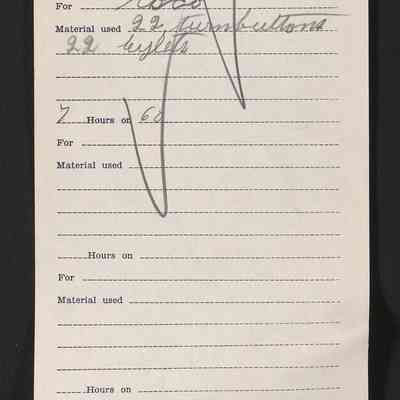 For
Material used 22 turnbuttons
22 eyelets
7 Hours on 60
For
Material used
Hours on
For
Material used
Hours on